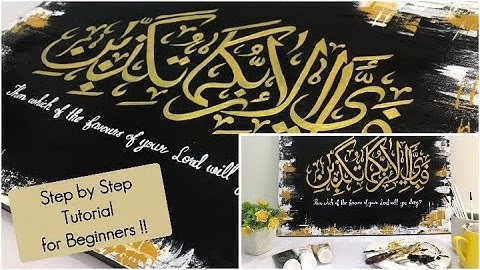 فبأي آلاء ربكما تكذبان
Then which of the favours of your Lord will
Step by Step
Tutorial
for Beginners !!
فبأي آلاء ربكما تكذبان
Then which of the favours of your Lord will you deny?